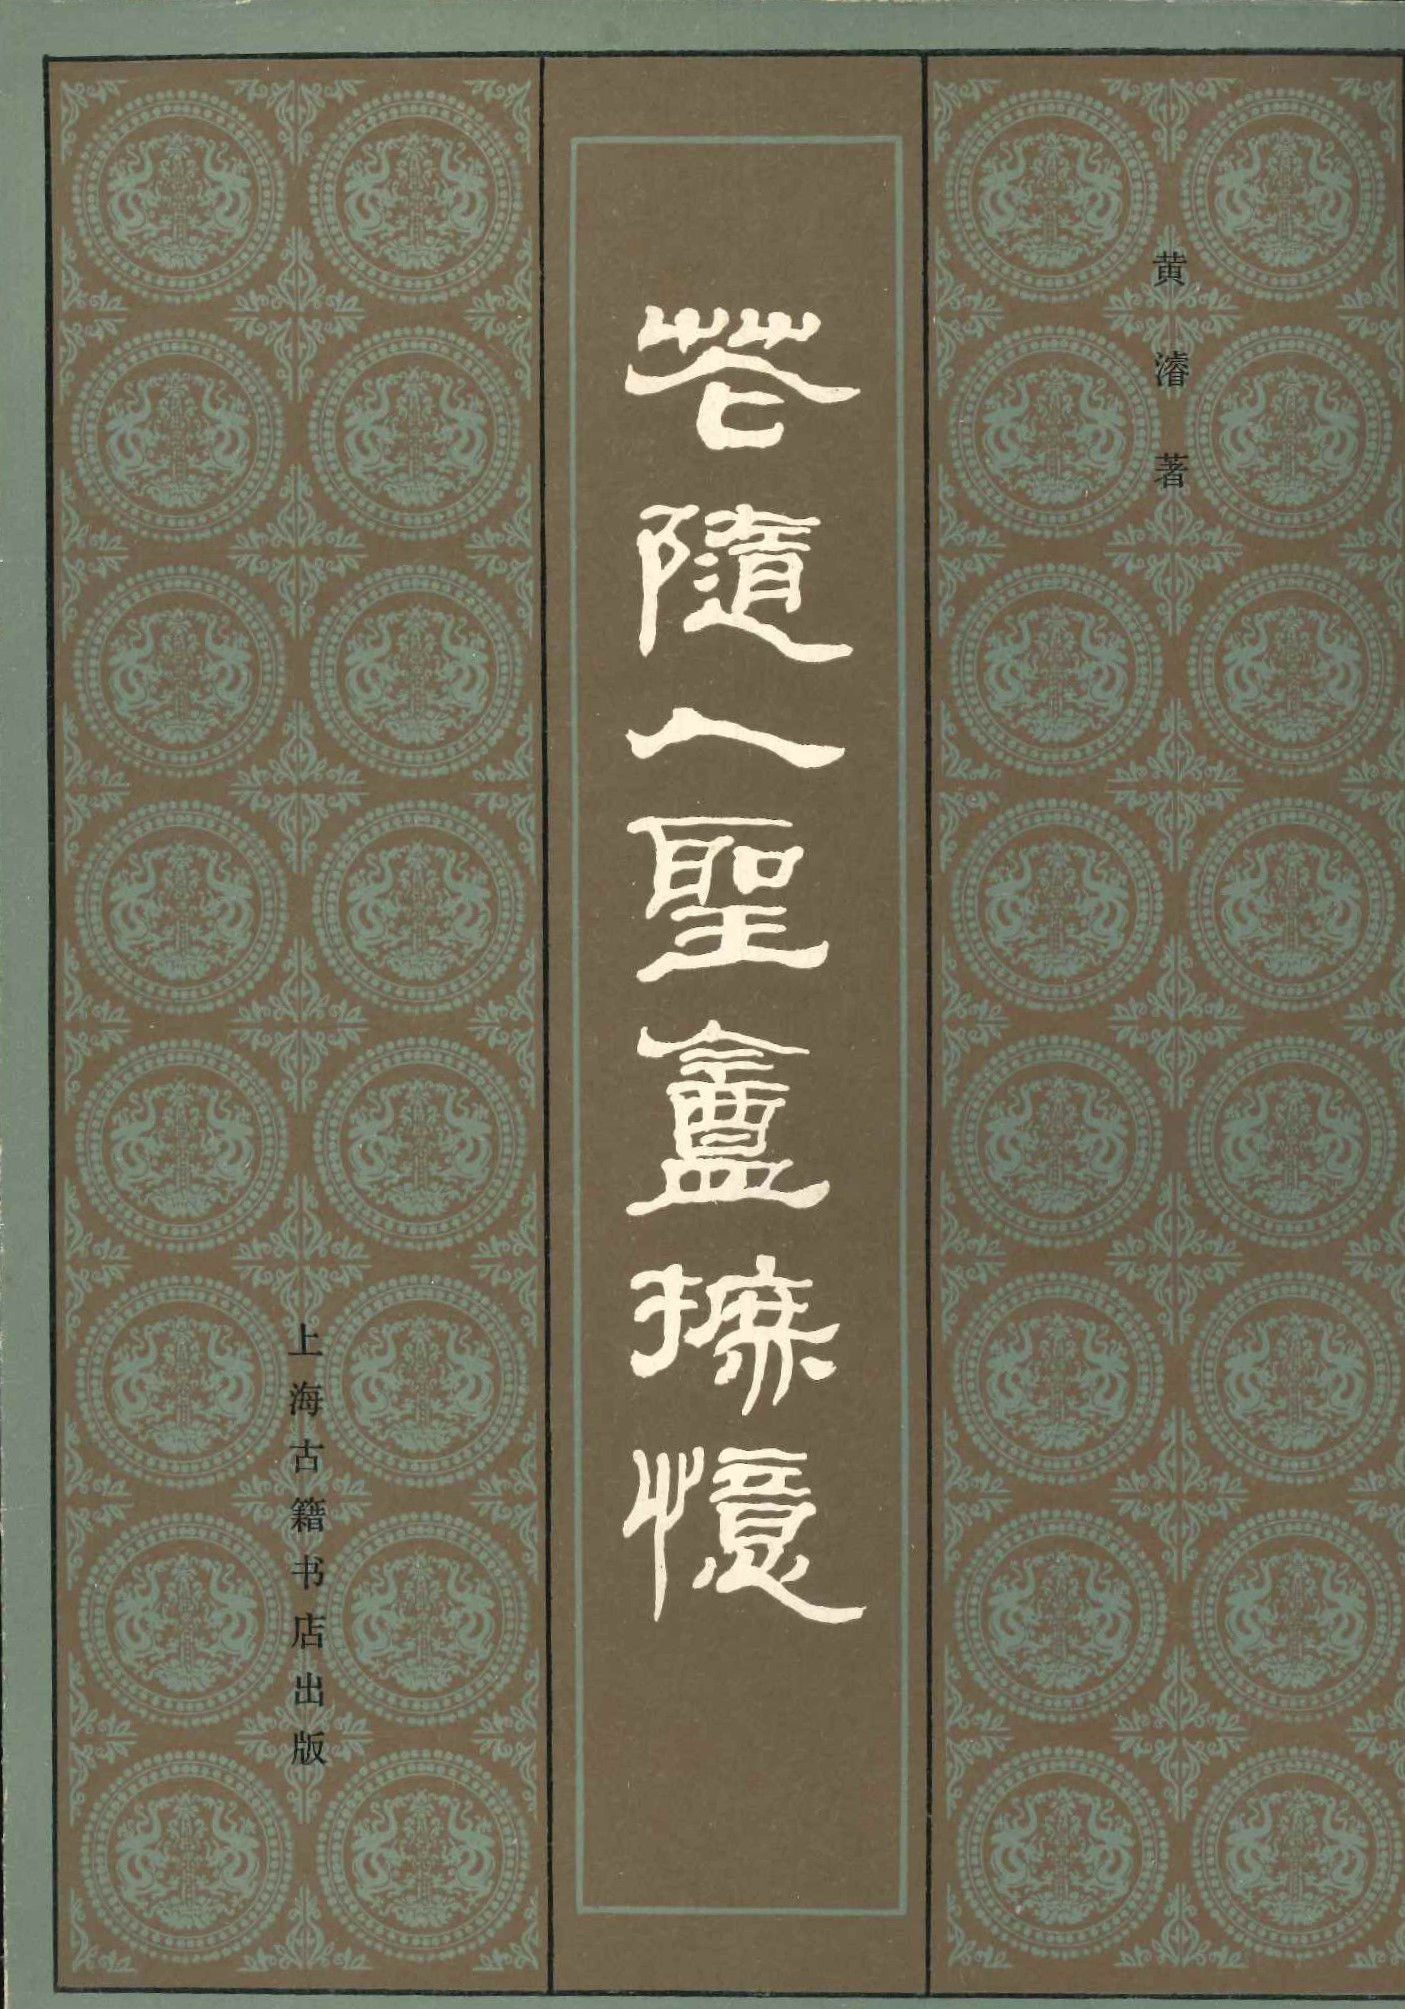 黄濬著
花隨人聖盦摭憶
上海古籍书店出版